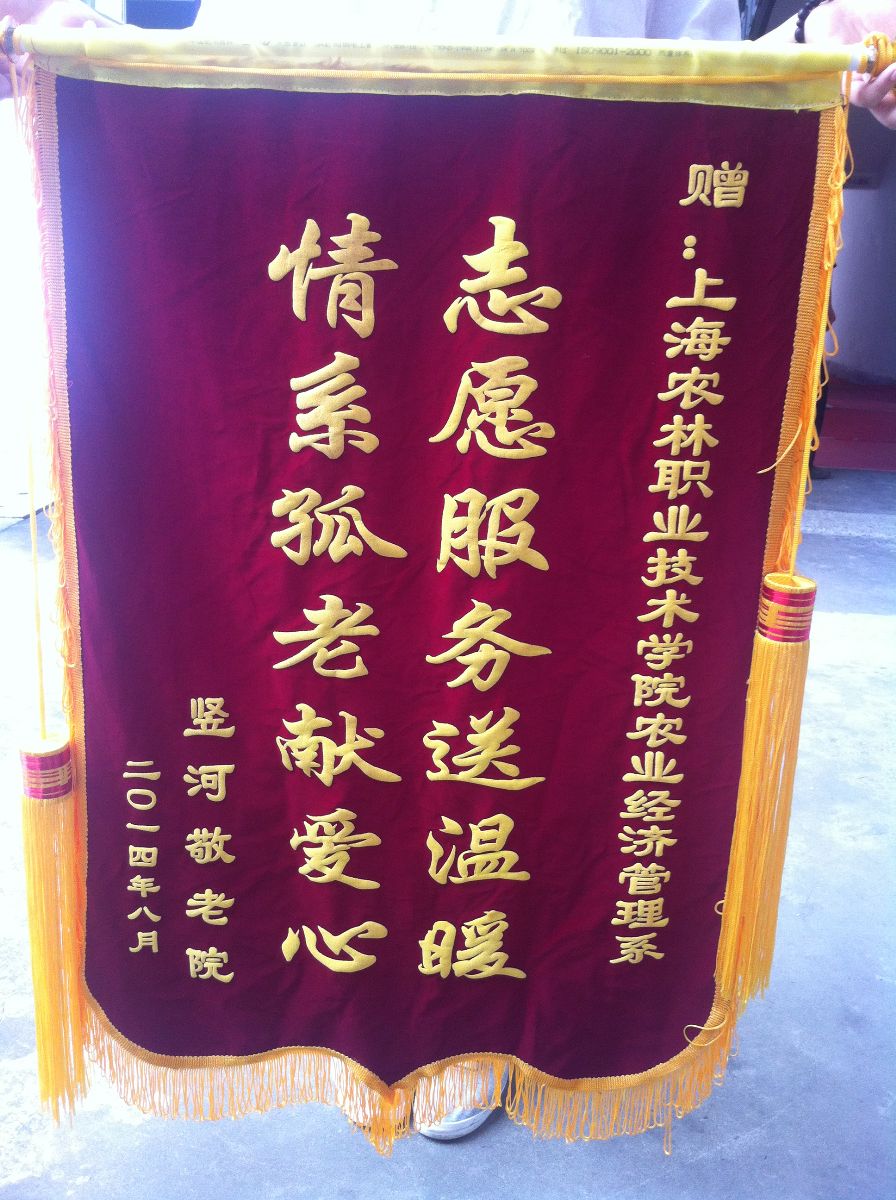 赠：上海农林职业技术学院农业经济管理系
志愿服务送温暖
情系孤老献爱心
竖河敬老院
二〇一四年八月
ISO9001-2000